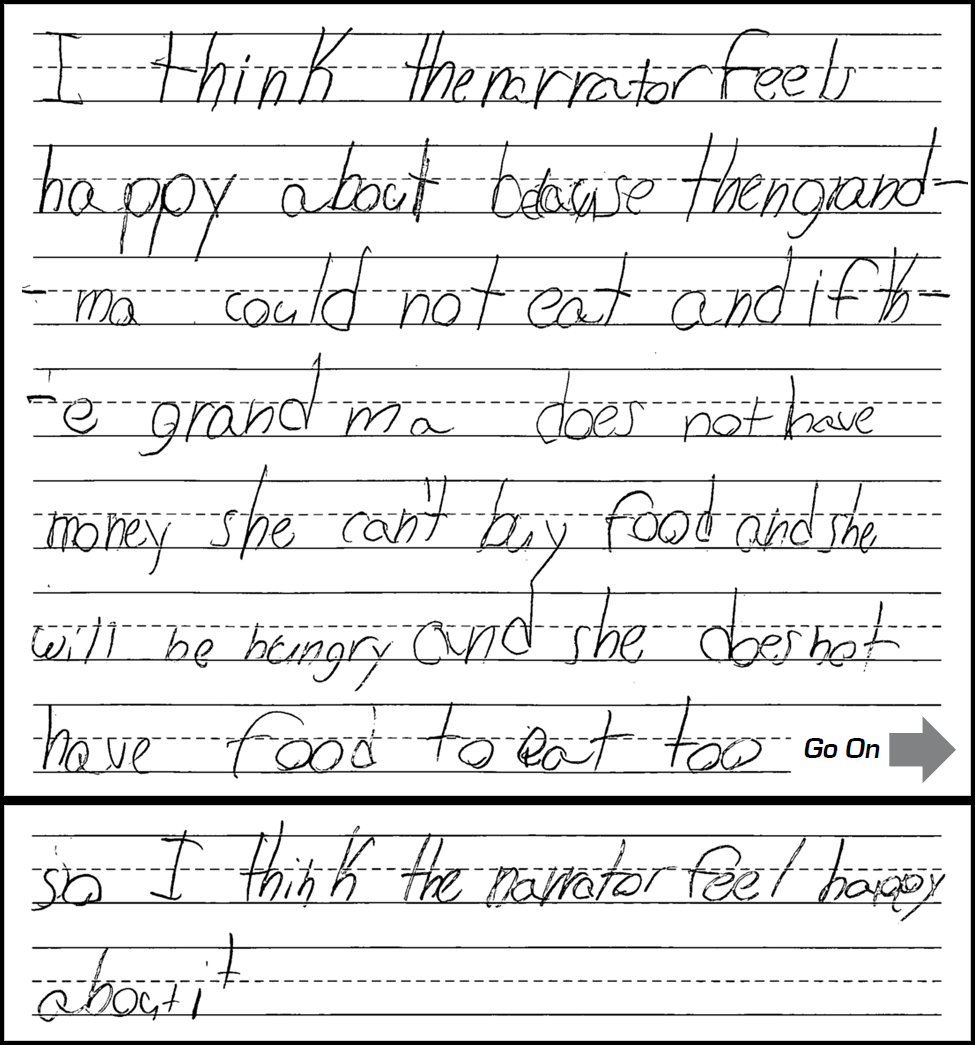 I think the narrator feels
happy about because then grand-
- ma could not eat and if th-
- e grand ma does not have
money she can't buy food and she
will be hungry and she does not
have food to eat too
Go On
so I think the narrator feel happy
about it